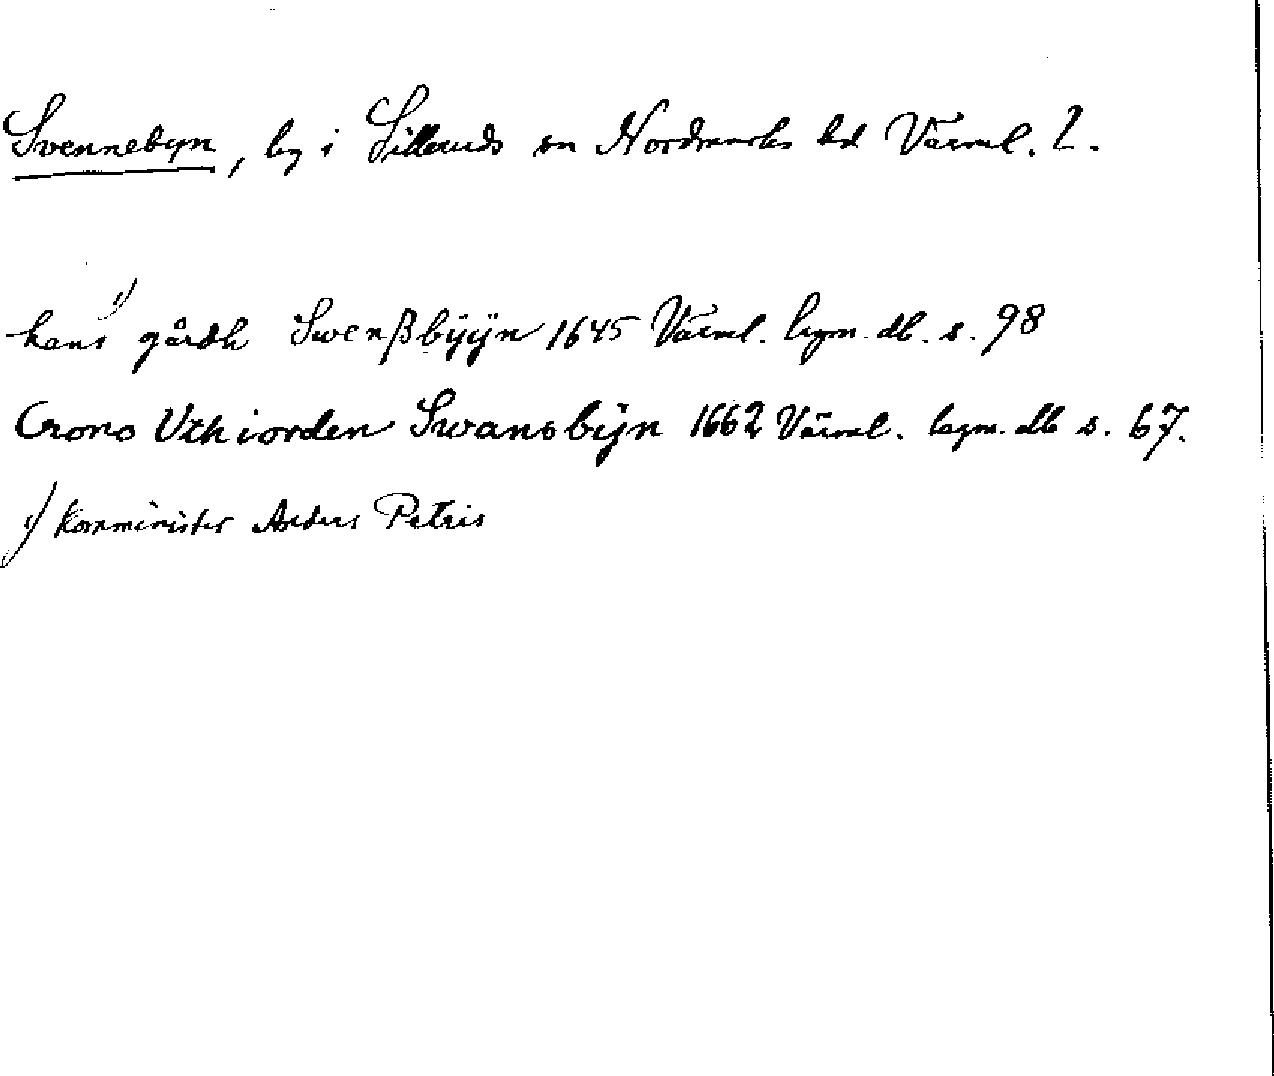 Svennebyn, by i Silleruds sn Nordmarks hd Värml. L.
hans ¹⁾ gårdh Swenßbÿÿn 1645 Värml. lagm. db. s. 98
Crono Vthiorden Swansbÿn 1662 Värml. lagm. db s. 67.
¹⁾ Komminister Andus Petris